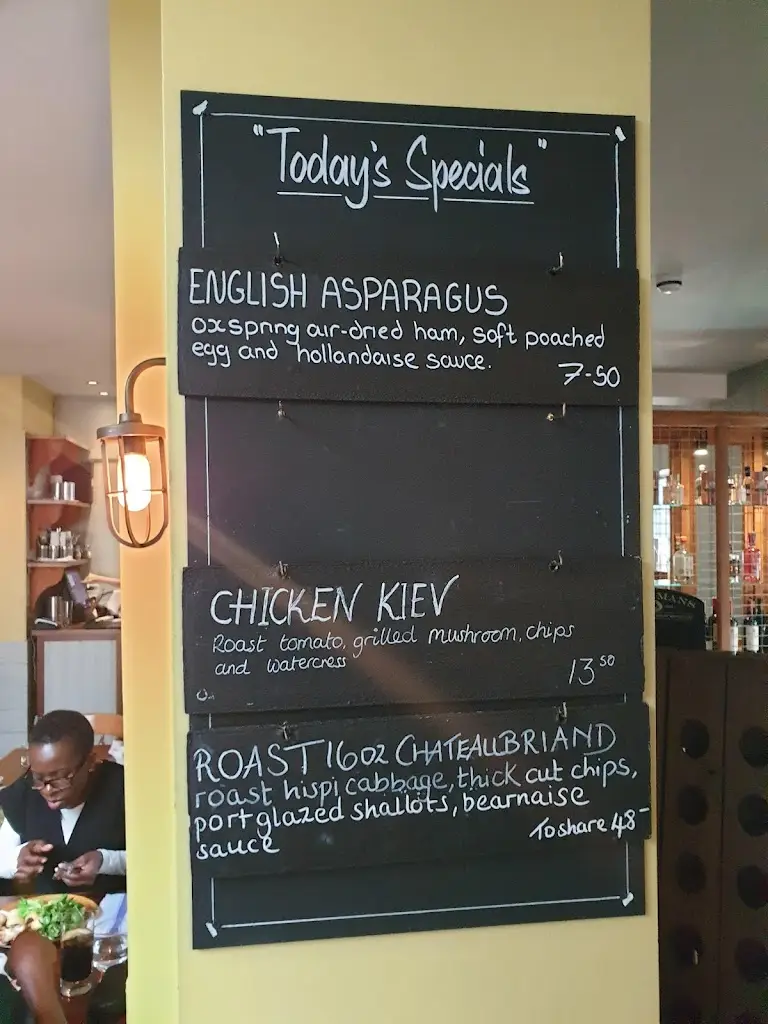 "Today's Specials"
ENGLISH ASPARAGUS
oxspring air-dried ham, soft poached
egg and hollandaise sauce.
7-50
CHICKEN KIEV
Roast tomato, grilled mushroom, chips
and watercress
13 50
ROAST 16oz CHATEAUBRIAND
roast hispi cabbage, thick cut chips,
port glazed shallots, bearnaise
sauce
To share 48-